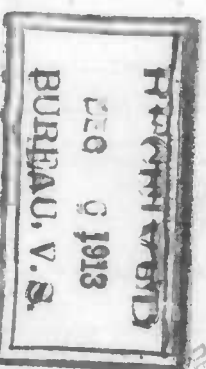 RECEIVED
DEC 6 1913
BUREAU, V.S.